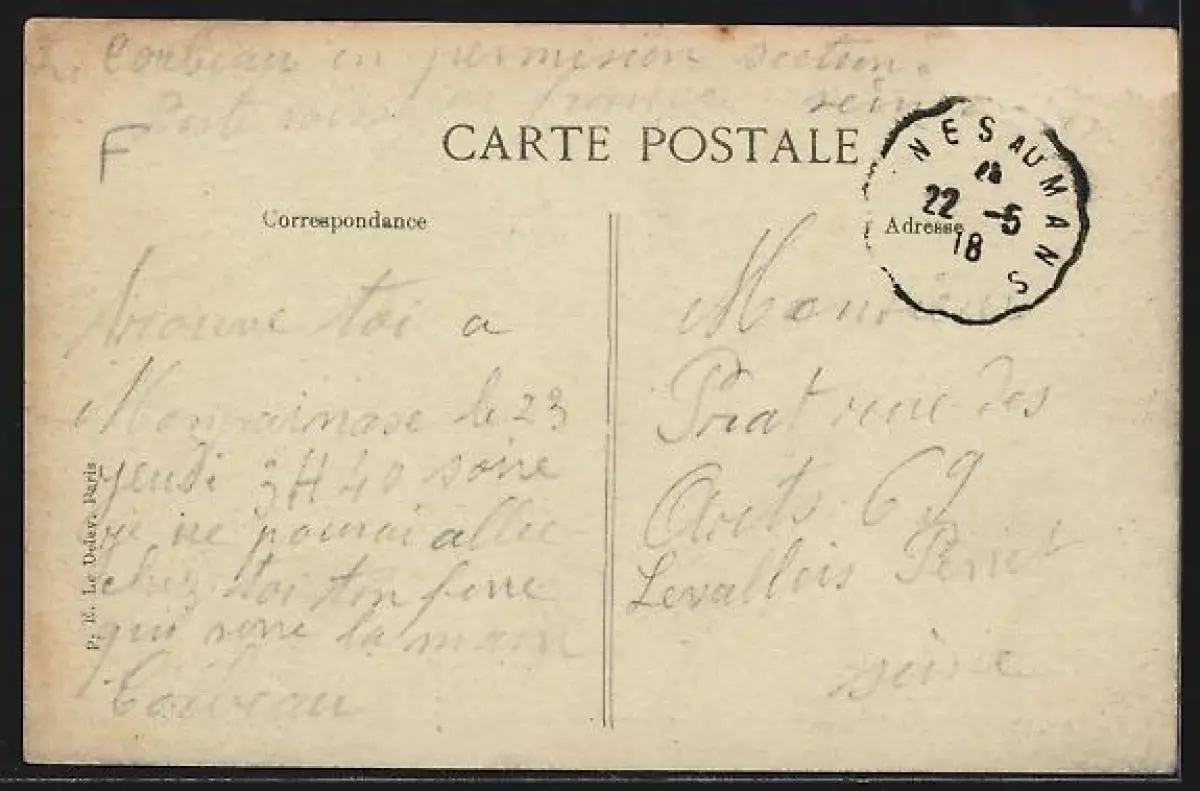 Corbeau en permision section
F
CARTE POSTALE
NES AU MANS
22 -5
18
Correspondance
Adresse
toi a
le 23
jeudi 3H40 soire
je ne pourai allie
chez toi ton frere
qui serre la main
Corbeau
Monsieur
Priat rue des
Arts 69
Levallois Perret
seine
P. E. Le Deley, Paris